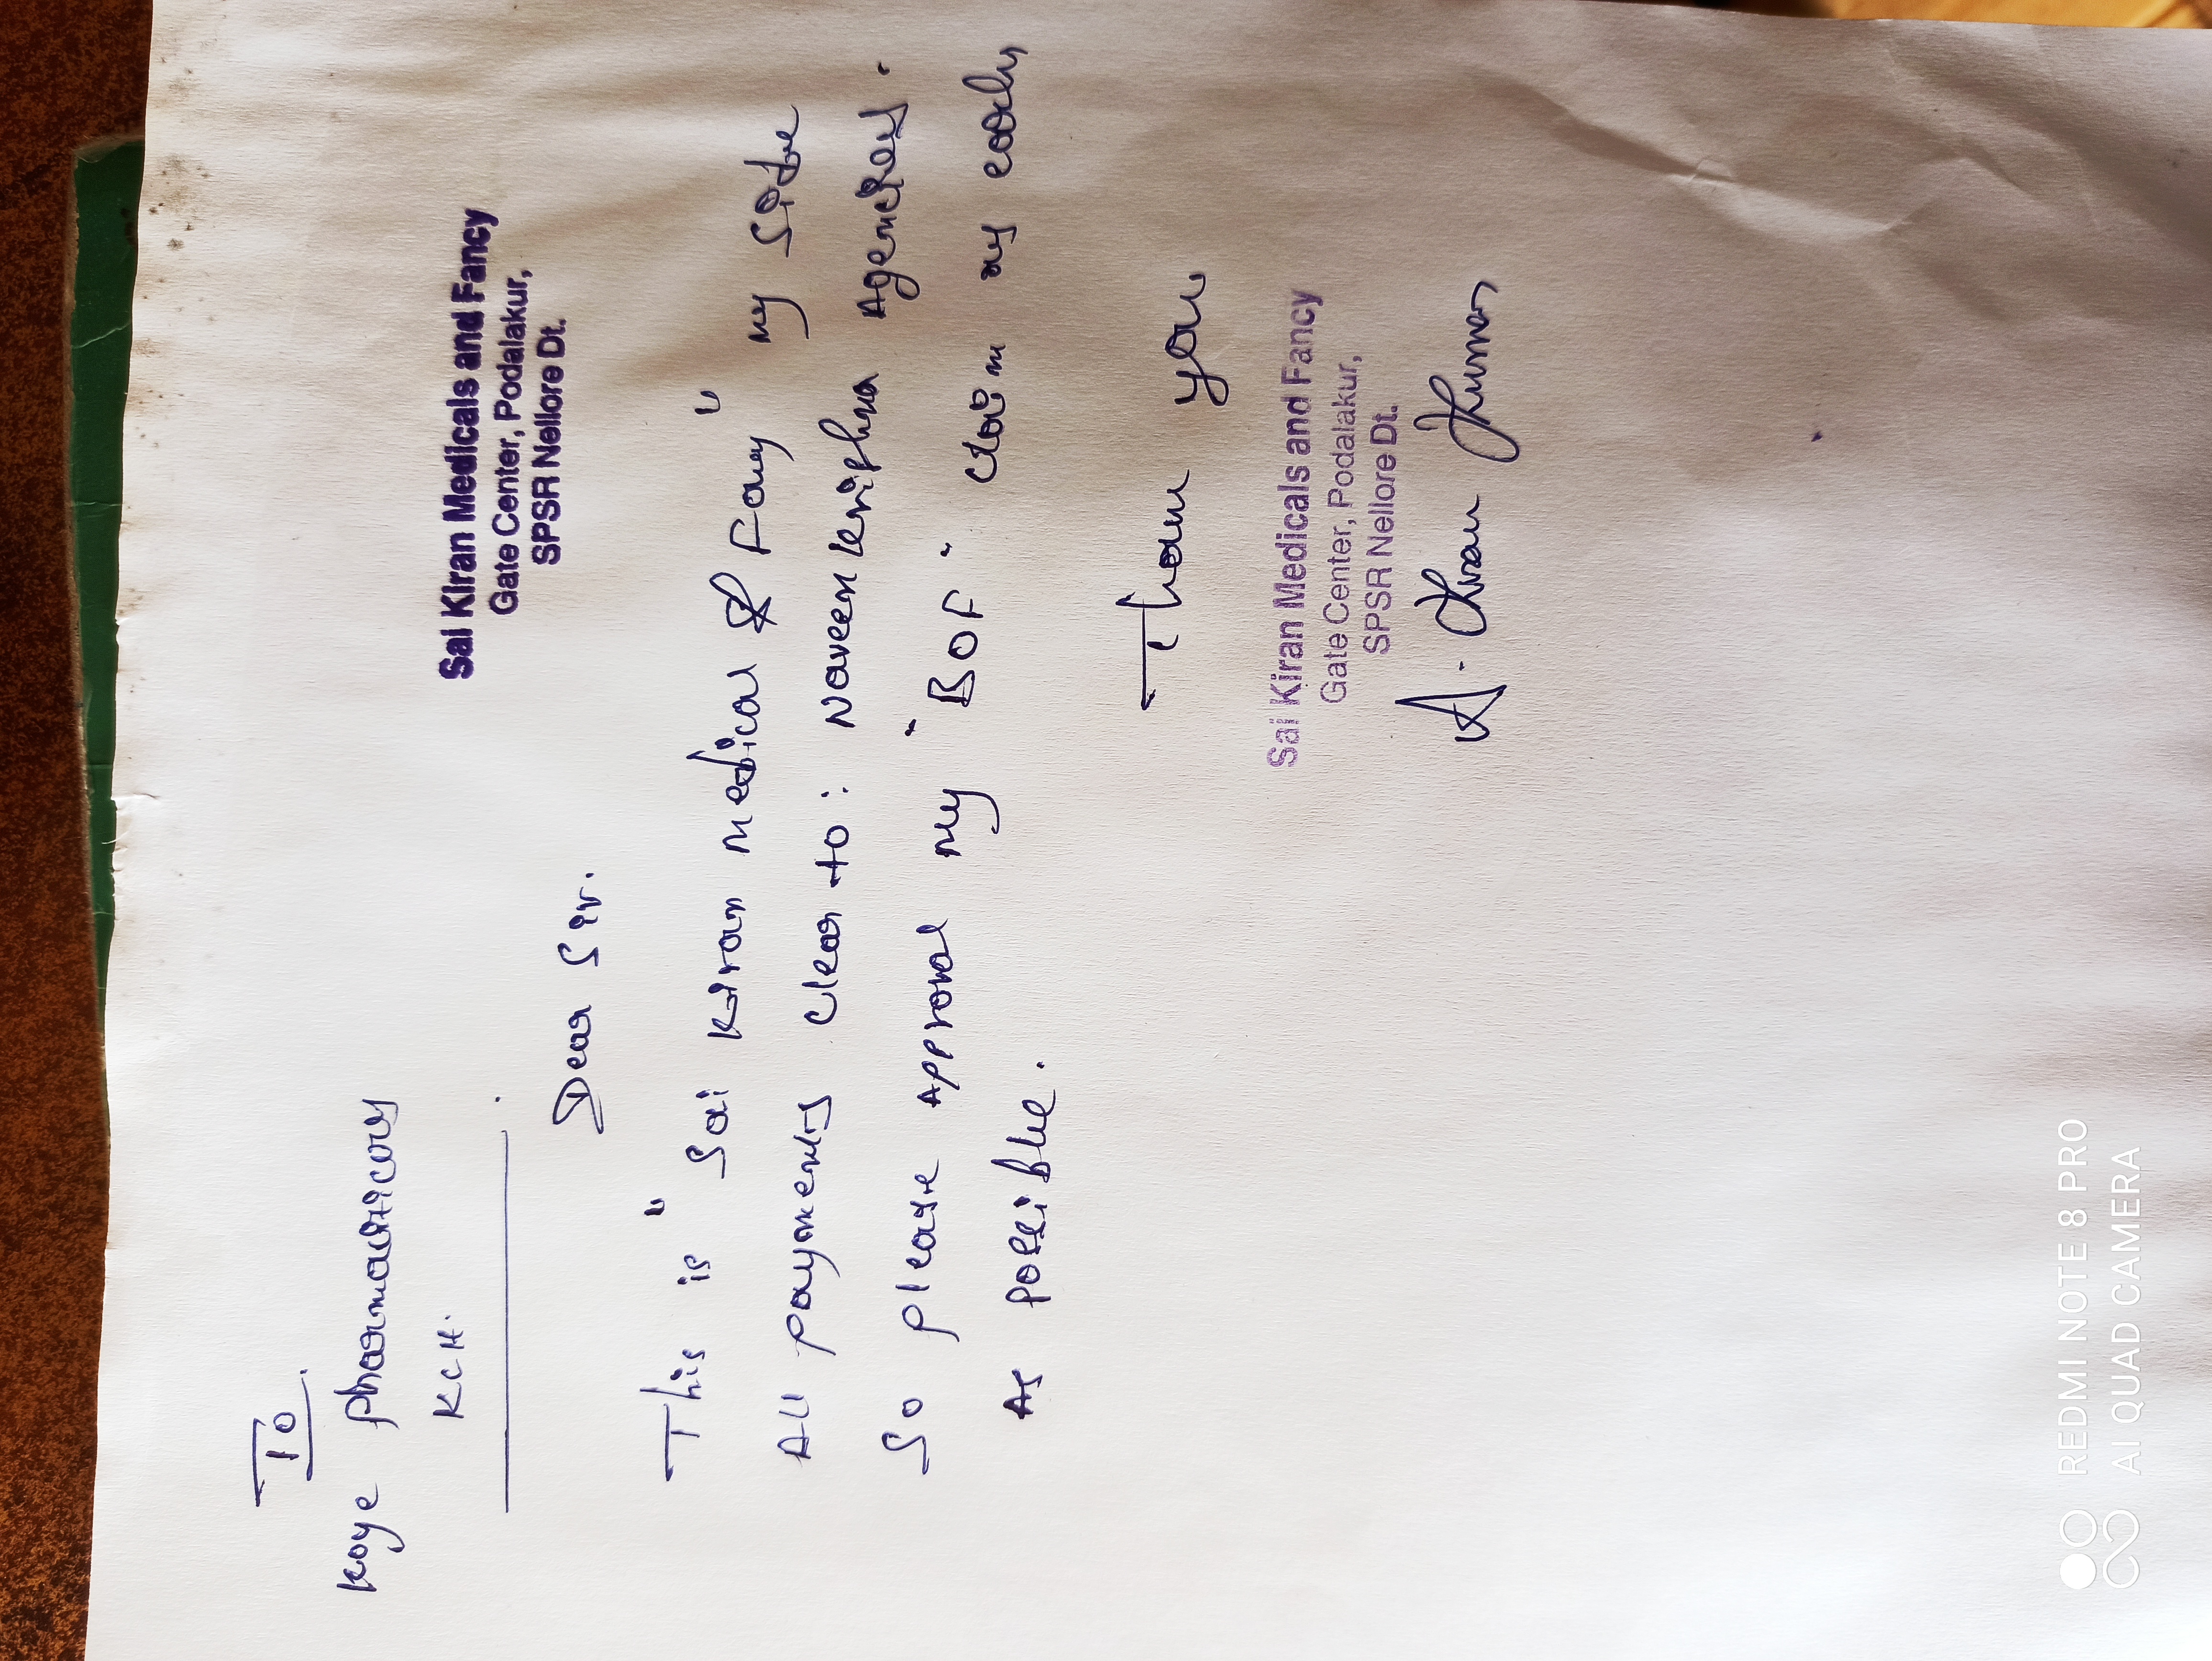 To
Koye Pharmauticals
KCH.
Sai Kiran Medicals and Fancy
Gate Center, Podalakur,
SPSR Nellore Dt.
Dear Sir.
This is " Sai Kiran medical & Fancy " my side
All payments clear to: Naveen krishna Agencies.
So please Approval my " BOF " claim as early
As possible.
Thank you
Sai Kiran Medicals and Fancy
Gate Center, Podalakur,
SPSR Nellore Dt.
A. Kiran Kumar
REDMI NOTE 8 PRO
AI QUAD CAMERA